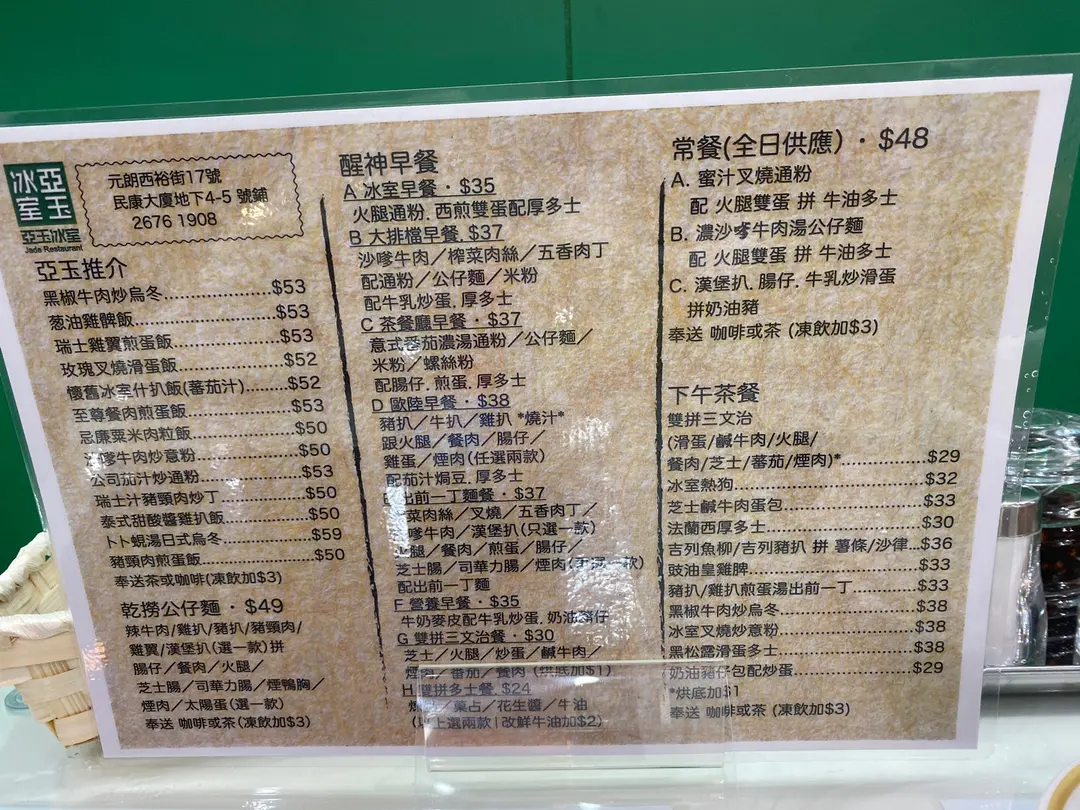 亞玉冰室
亞玉冰室
Jade Restaurant
元朗西裕街17號
民康大廈地下4-5 號鋪
2676 1908
亞玉推介
黑椒牛肉炒烏冬....................$53
葱油雞髀飯..........................$53
瑞士雞翼煎蛋飯....................$53
玫瑰叉燒滑蛋飯....................$52
懷舊冰室什扒飯(蕃茄汁)........$52
至尊餐肉煎蛋飯....................$53
忌廉粟米肉粒飯....................$50
嗲牛肉炒意粉....................$50
公司茄汁炒通粉....................$53
瑞士汁豬頸肉炒丁.................$50
泰式甜酸醬雞扒飯.................$50
卜卜蜆湯日式烏冬.................$59
豬頸肉煎蛋飯.......................$50
奉送茶或咖啡(凍飲加$3)
乾撈公仔麵・$49
辣牛肉/雞扒/豬扒/豬頸肉/
雞翼/漢堡扒(選一款)拼
腸仔/餐肉/火腿/
芝士腸/司華力腸/煙鴨胸/
煙肉/太陽蛋(選一款)
奉送 咖啡或茶(凍飲加$3)
醒神早餐
A 冰室早餐・$35
火腿通粉. 西煎雙蛋配厚多士
B 大排檔早餐. $37
沙嗲牛肉／榨菜肉絲／五香肉丁
配通粉／公仔麵／米粉
配牛乳炒蛋. 厚多士
C 茶餐廳早餐・$37
意式番茄濃湯通粉／公仔麵／
米粉／螺絲粉
配腸仔. 煎蛋. 厚多士
D 歐陸早餐・$38
豬扒／牛扒／雞扒 *燒汁*
跟火腿／餐肉／腸仔／
雞蛋／煙肉(任選兩款)
配茄汁焗豆. 厚多士
出前一丁麵餐・$37
菜肉絲／叉燒／五香肉丁／
嗲牛肉／漢堡扒(只選一款)
腿／餐肉／煎蛋／腸仔／
芝士腸／司華力腸／煙肉(選一款)
配出前一丁麵
F 營養早餐・$35
牛奶麥皮配牛乳炒蛋. 奶油豬仔
G 雙拼三文治餐・$30
芝士／火腿／炒蛋／鹹牛肉／
煙肉／番茄／餐肉 (烘底加$1)
H 雙拼多士餐. $24
果占／花生醬／牛油
(以上選兩款 | 改鮮牛油加$2)
常餐(全日供應)・$48
A. 蜜汁叉燒通粉
配 火腿雙蛋 拼 牛油多士
B. 濃沙嗲牛肉湯公仔麵
配 火腿雙蛋 拼 牛油多士
C. 漢堡扒. 腸仔. 牛乳炒滑蛋
拼奶油豬
奉送 咖啡或茶 (凍飲加$3)
下午茶餐
雙拼三文治
(滑蛋/鹹牛肉/火腿/
餐肉/芝士/蕃茄/煙肉)*..............$29
冰室熱狗................................$32
芝士鹹牛肉蛋包........................$33
法蘭西厚多士...........................$30
吉列魚柳/吉列豬扒 拼 薯條/沙律...$36
豉油皇雞脾..............................$33
豬扒/雞扒煎蛋湯出前一丁...........$33
黑椒牛肉炒烏冬........................$38
冰室叉燒炒意粉........................$38
黑松露滑蛋多士........................$38
奶油豬仔包配炒蛋.....................$29
*烘底加$1
奉送 咖啡或茶 (凍飲加$3)